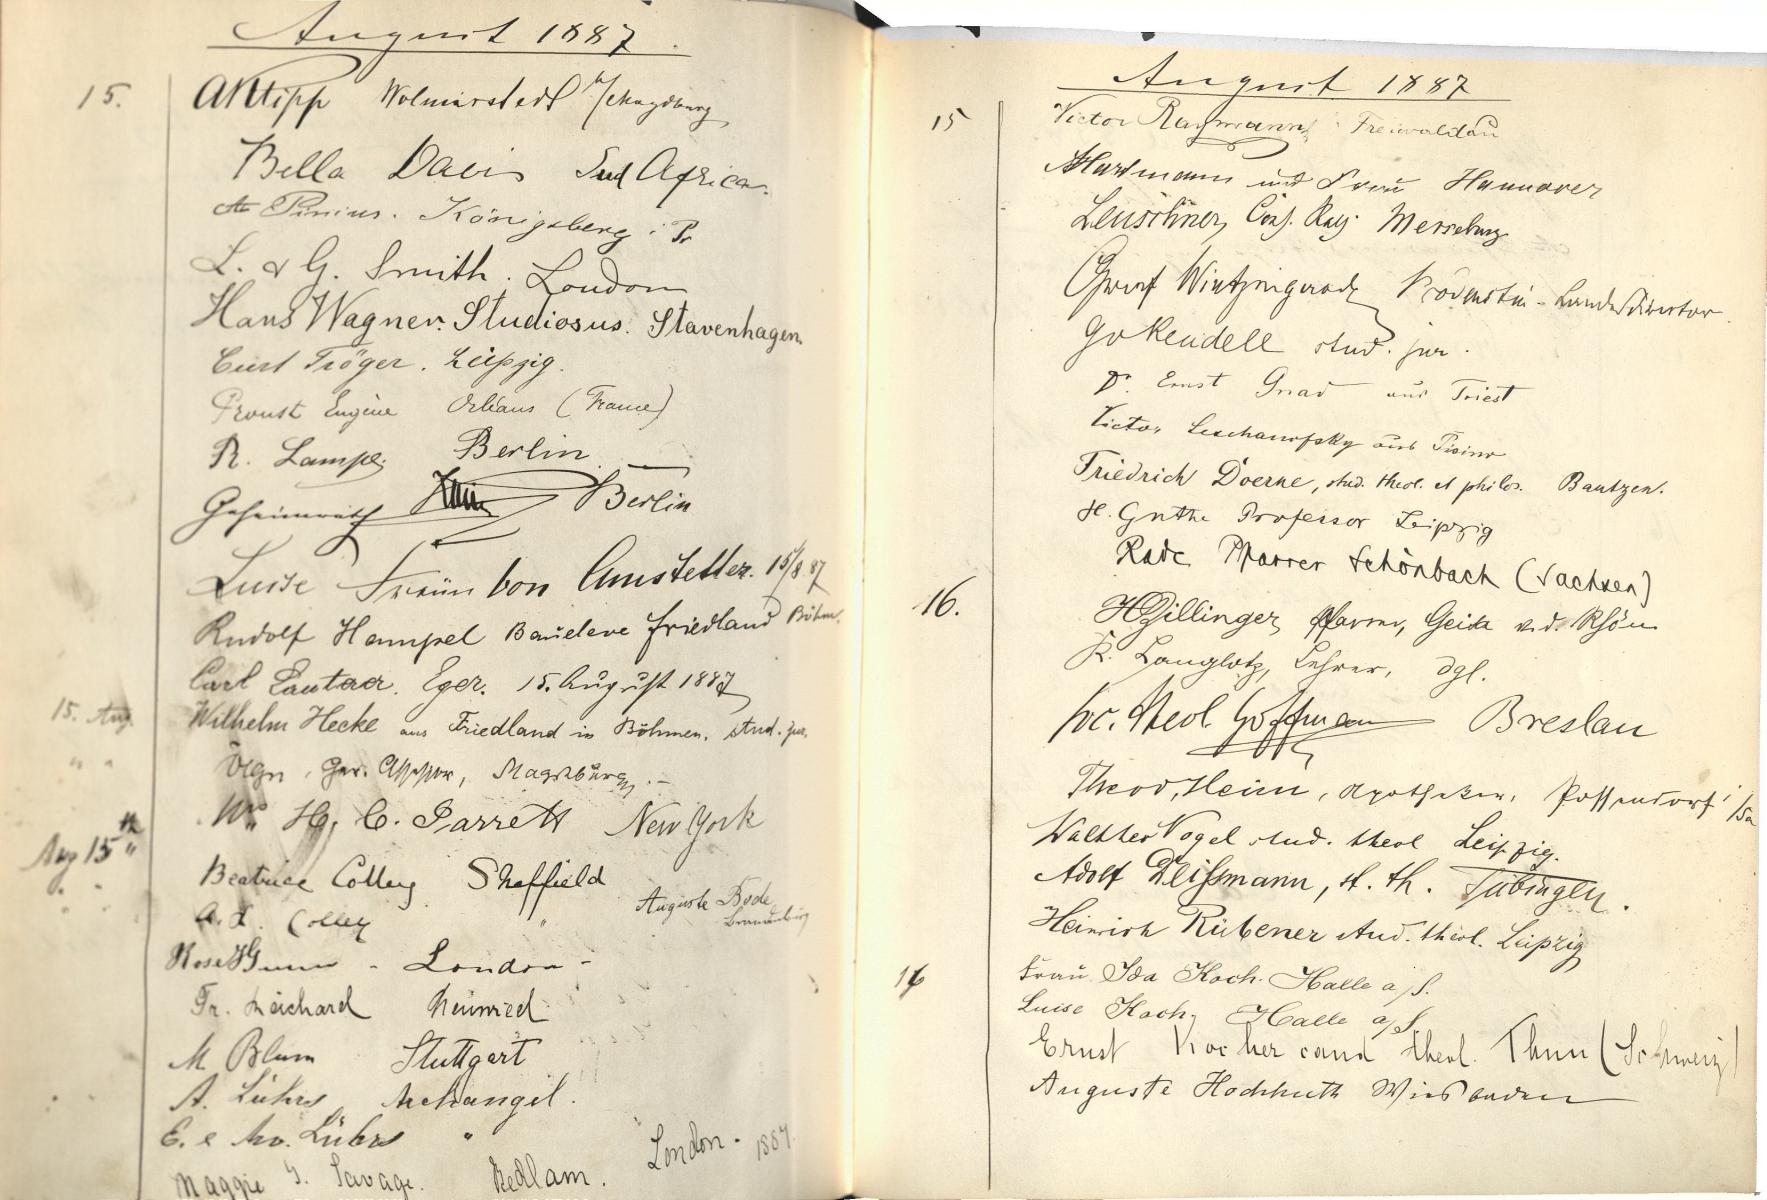 August 1887.
15. Wolmirstedt b/Magdburg
Bella Davis Sud Africa.
Pinius. Königsberg i Pr
L. & G. Smith. London
Hans Wagner. Studiosus. Stavenhagen.
Curt Tröger. Leipzig.
Proust Eugène Orléans (France)
R. Lampe Berlin
Geheimrath Berlin
Luise von Amstetter. 15/8 87
Rudolf Hampel Baueleve Friedland Böhm.
Carl Eger. 15. August 1887
15. Aug. Wilhelm Hecke aus Friedland in Böhmen. stud. jur.
" " Ger. Assessor, Magdeburg.
Mrs H. C. Garrett New York
Aug 15th Beatrice Colley Sheffield
A. L. Colley "
Auguste Bode
Brandenburg
Rose London -
Fr. Reichard Neuwied
M Blum Stuttgart
A. Lührs Archangel.
E. e Lührs "
Maggie S. Savage. Bedlam. London. 1887.
August 1887
15 Victor Freiwaldau
Hartmann und Frau Hannover
Leuschner, Cons. Merseburg
Graf Wintzingerode Landesdirektor
stud. jur.
Dr. Ernst Gnad aus Triest
Victor aus Pisino
Friedrich Doerne, stud. theol. et philos. Bautzen.
H. Guthe Professor Leipzig
Rade Pfarrer Schönbach (Sachsen)
16. Zillinger, Pfarrer, Geisa v. d. Rhön
K. Langlotz, Lehrer, dgl.
Theol. Hoffmann Breslau
Theod. Heim, Apotheker, Possendorf i/Sa
Walther Vogel stud. theol Leipzig.
Adolf Deißmann, st. th. Tübingen.
Heinrich Rübener stud. theol. Leipzig
16 Frau Ida Koch. Halle a/S.
Luise Koch, Halle a/S.
Ernst Kocher cand theol. Thun (Schweiz)
Auguste Hochhuth Wiesbaden